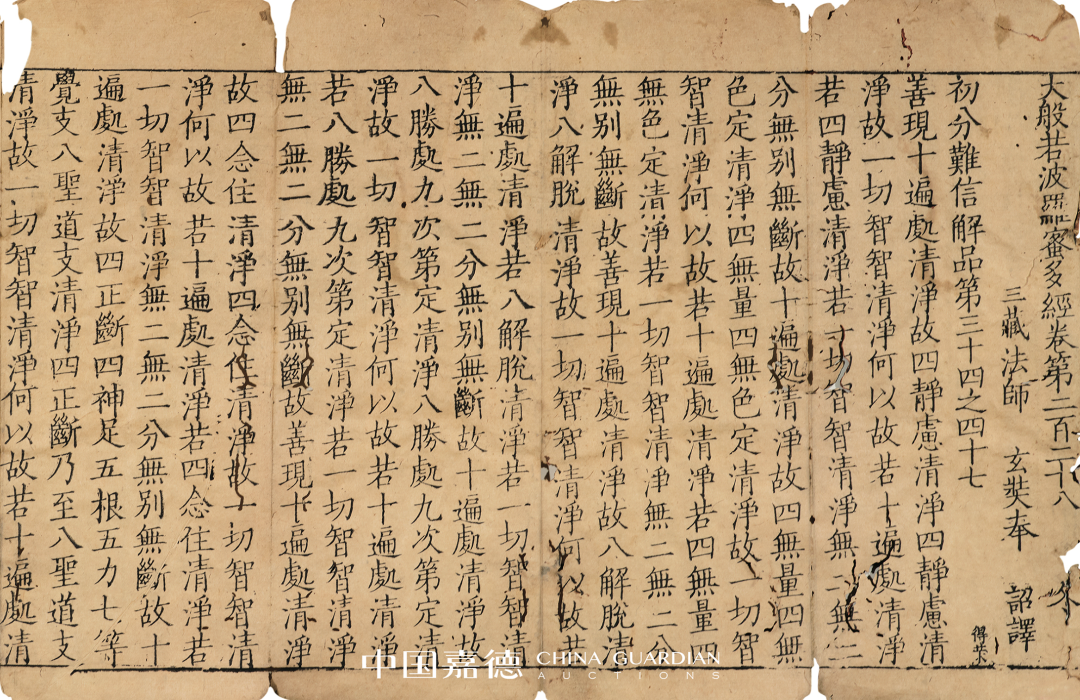 大般若波羅蜜多經卷第二百二十八
三藏法師 玄奘奉 詔譯
初分難信解品第三十四之四十七
得榮
善現十遍處清淨故四靜慮清淨四靜慮清
淨故一切智智清淨何以故若十遍處清淨
若四靜慮清淨若一切智智清淨無二無二
分無別無斷故十遍處清淨故四無量四無
色定清淨四無量四無色定清淨故一切智
智清淨何以故若十遍處清淨若四無量四
無色定清淨若一切智智清淨無二無二分
無別無斷故善現十遍處清淨故八解脫清
淨八解脫清淨故一切智智清淨何以故若
十遍處清淨若八解脫清淨若一切智智清
淨無二無二分無別無斷故十遍處清淨故
八勝處九次第定清淨八勝處九次第定清
淨故一切智智清淨何以故若十遍處清淨
若八勝處九次第定清淨若一切智智清淨
無二無二分無別無斷故善現十遍處清淨
故四念住清淨四念住清淨故一切智智清
淨何以故若十遍處清淨若四念住清淨若
一切智智清淨無二無二分無別無斷故十
遍處清淨故四正斷四神足五根五力七等
覺支八聖道支清淨四正斷乃至八聖道支
清淨故一切智智清淨何以故若十遍處清
中国嘉德 CHINA GUARDIAN
AUCTIONS